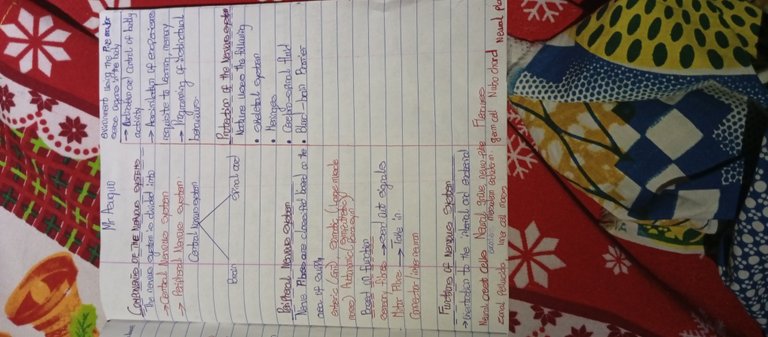 Mr Asaqulo
COMPONENTS OF THE NERVOUS SYSTEMS
The nervous system is divided into
→ Central Nervous system
→ Peripheral Nervous system
Central Nervous system
Brain Spinal cord
Peripheral Nervous system
Nerve Fibres are classified based on the
area of supply
Based on function
Sensory Fibre → send out signals
Motor Fibre → Take in
Connector information
Functions of Nervous System
→ Orientation to the internal and external
environment using the five major
sense organs of the body
→ Coordination and control of body
activity
→ Assimilation of experiences
requisite to learning, memory
→ Programming of instinctual
behaviours
Protection of the Nervous system
Nature uses the following
• Skeletal system
• Meninges
• Cerebro-spinal fluid
• Blood-brain Barrier
Neural crest Cells Neural gove neural tube Flexures
Zonal Pellucida
germ cell Noto chord Neural pla